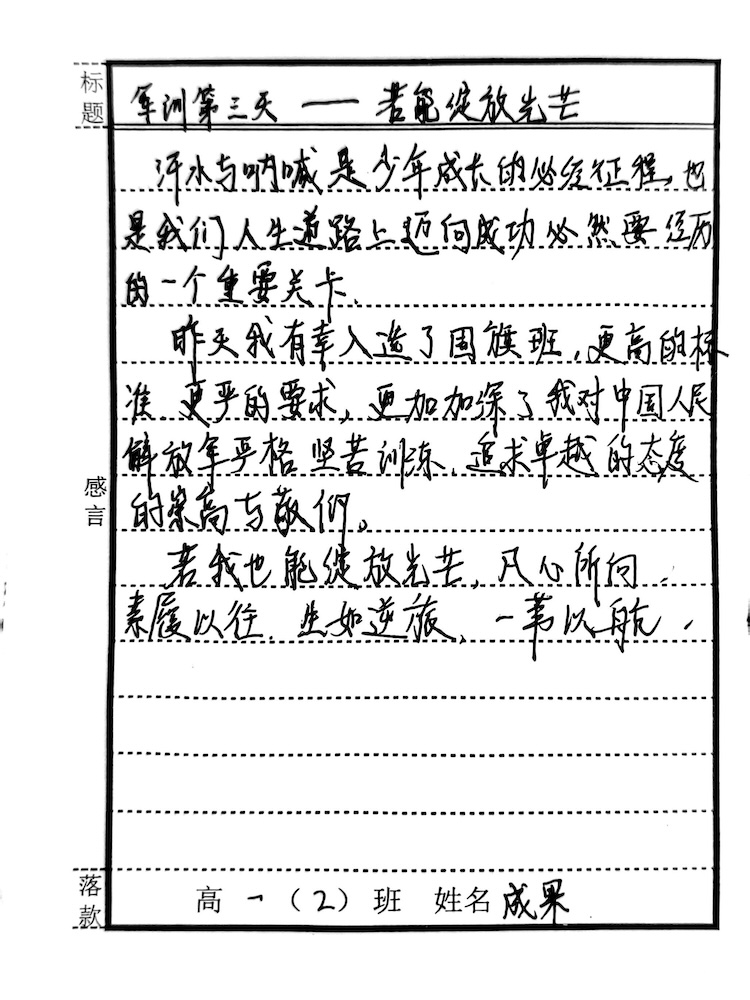 标题
军训第三天——若能绽放光芒
汗水与呐喊是少年成长的必经征程,也
是我们人生道路上迈向成功必然要经历
的一个重要关卡.
昨天我有幸入选了国旗班,更高的标
准 更严的要求,更加加深了我对中国人民
解放军严格坚苦训练.追求卓越的态度
的崇高与敬仰。
若我也能绽放光芒,凡心所向,
素履以往.生如逆旅,一苇以航.
感言
落款
高一(2)班 姓名成果